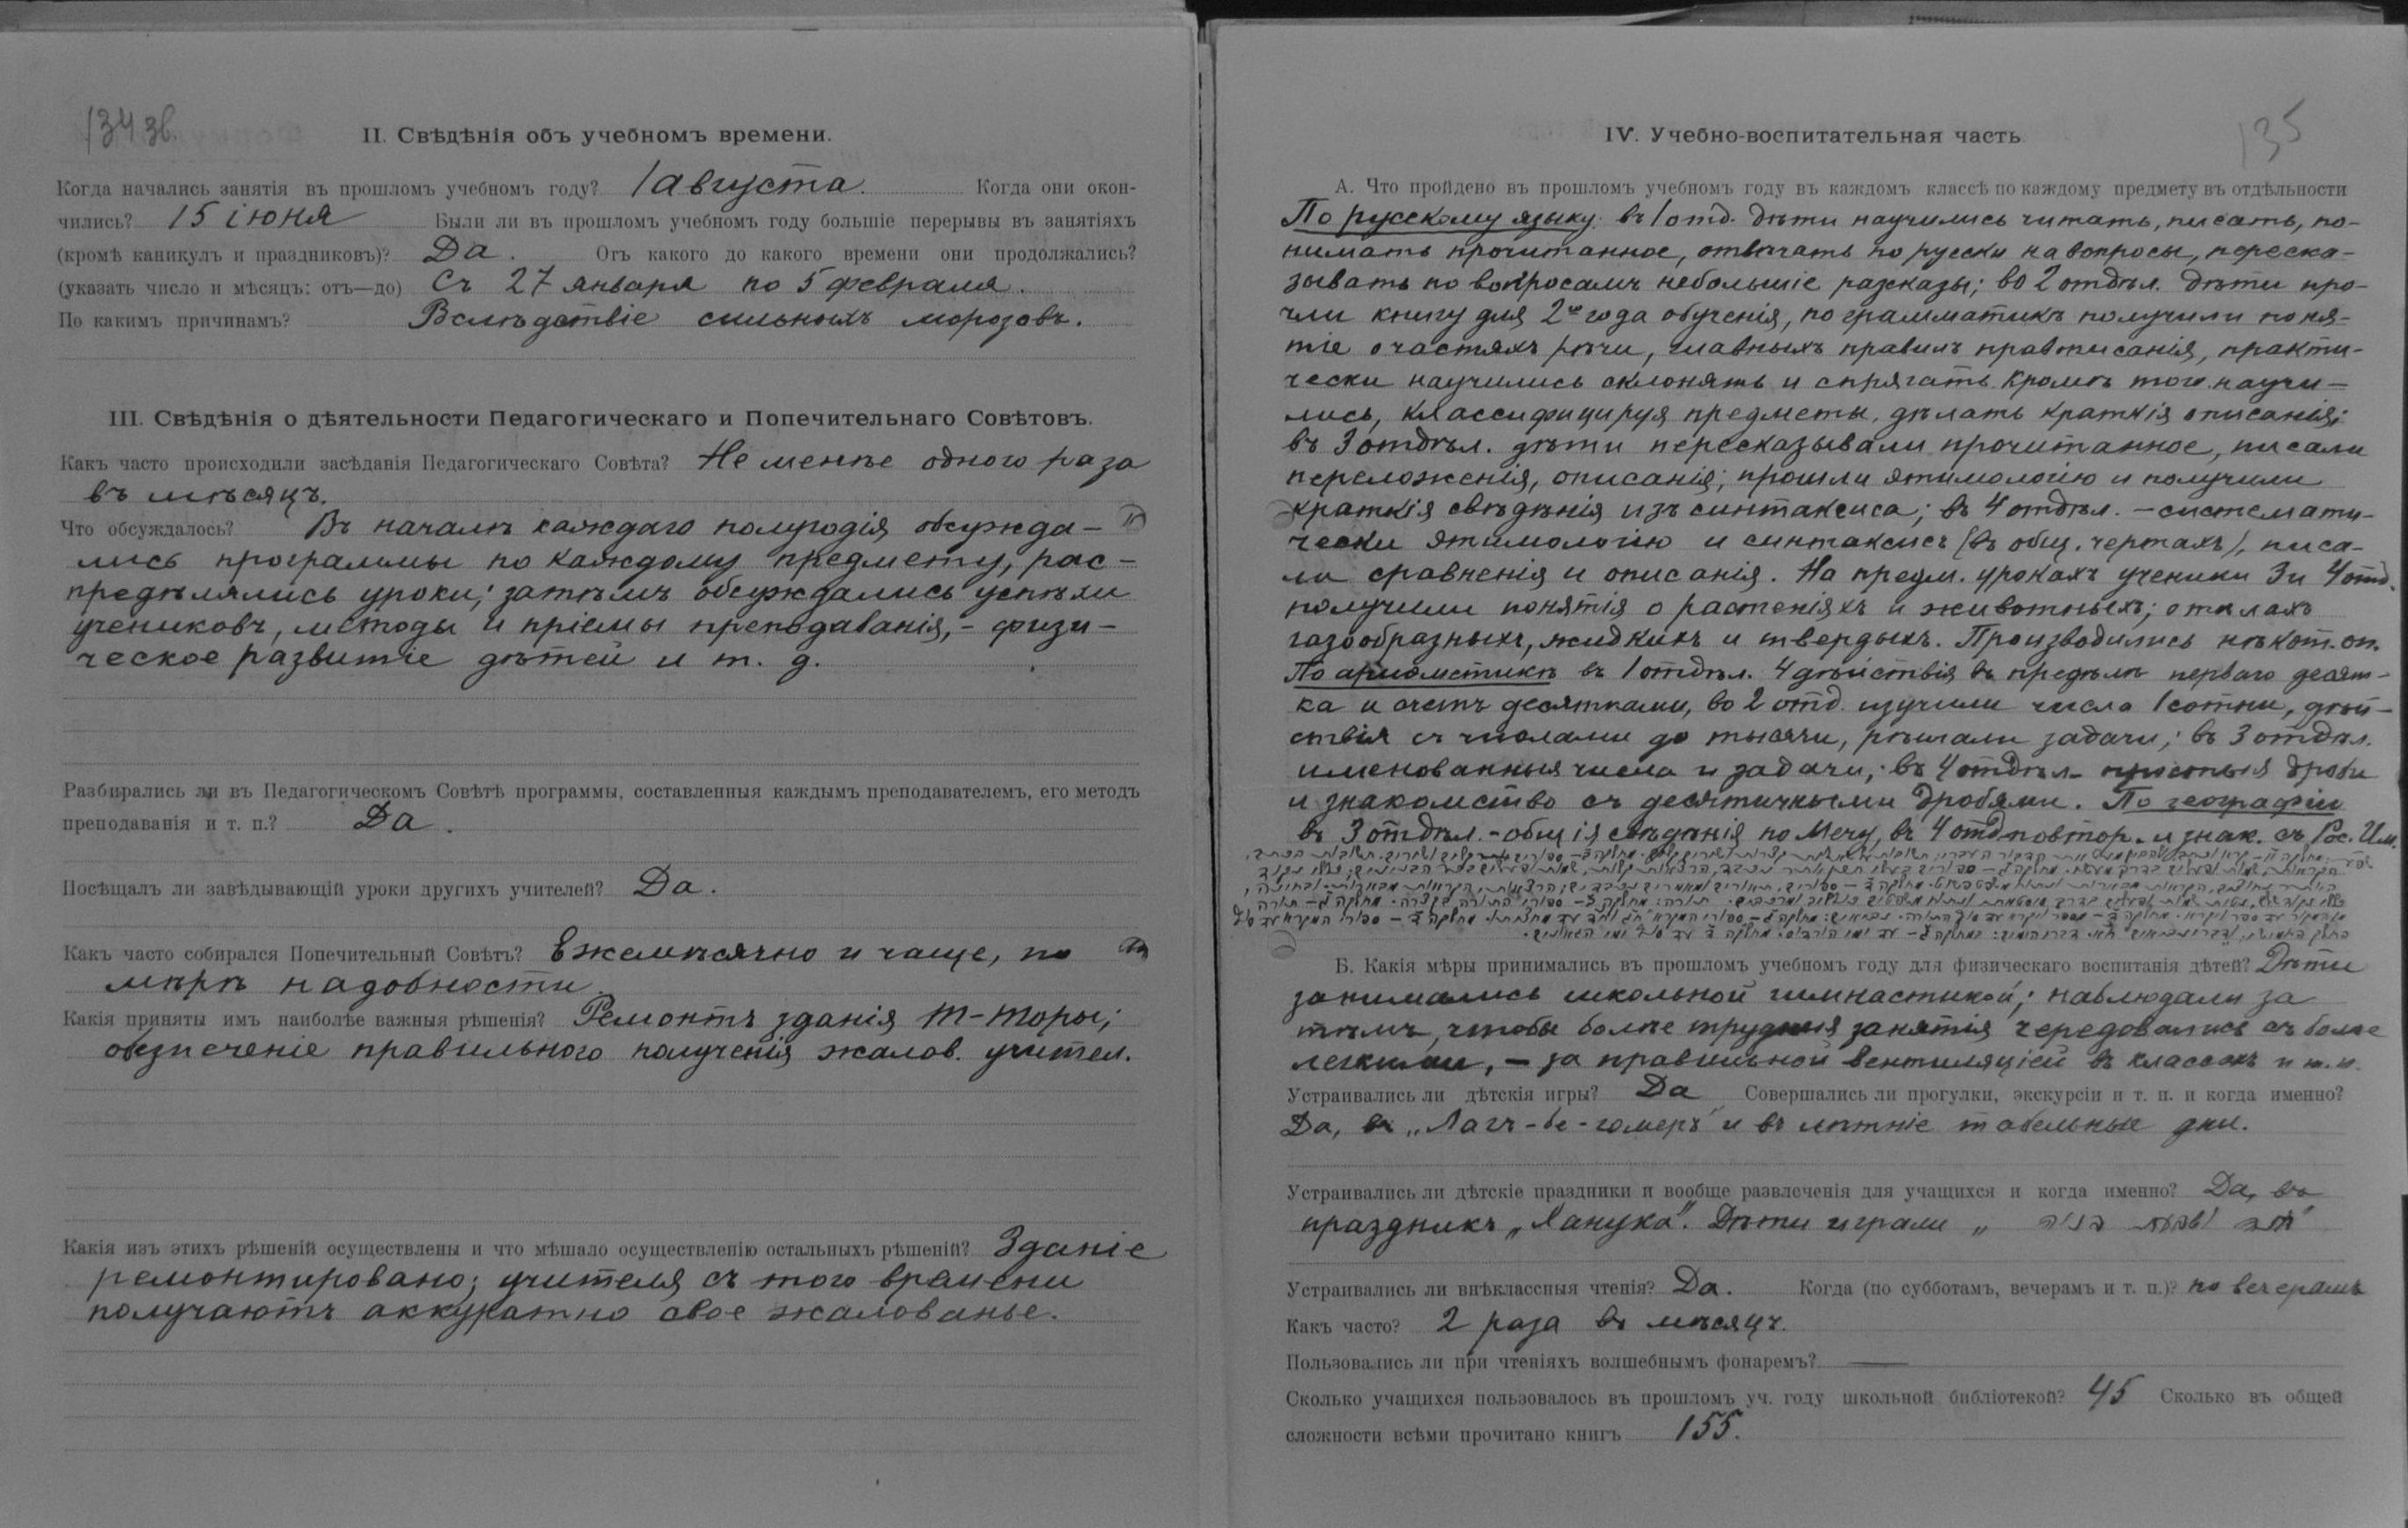 134 зв.
II. Свѣдѣнія объ учебномъ времени.
Когда начались занятія въ прошломъ учебномъ году? 1 августа. Когда они окон-
чились? 15 іюня Были ли въ прошломъ учебномъ году большіе перерывы въ занятіяхъ
(кромѣ каникулъ и праздниковъ)? Да. Отъ какого до какого времени они продолжались?
(указать число и мѣсяцъ: отъ—до) Съ 27 января по 5 февраля.
По какимъ причинамъ? Вслѣдствіе сильныхъ морозовъ.
III. Свѣдѣнія о дѣятельности Педагогическаго и Попечительнаго Совѣтовъ.
Какъ часто происходили засѣданія Педагогическаго Совѣта? Не менѣе одного раза
въ мѣсяцъ.
Что обсуждалось? Въ началѣ каждаго полугодія обсужда-
лись программы по каждому предмету, рас-
предѣлялись уроки; затѣмъ обсуждались успѣхи
учениковъ, методы и пріемы преподаванія, - физи-
ческое развитіе дѣтей и т. д.
Разбирались ли въ Педагогическомъ Совѣтѣ программы, составленныя каждымъ преподавателемъ, его методъ
преподаванія и т. п.? Да.
Посѣщалъ ли завѣдывающій уроки другихъ учителей? Да.
Какъ часто собирался Попечительный Совѣтъ? Ежемѣсячно и чаще, по
мѣрѣ надобности.
Какія приняты имъ наиболѣе важныя рѣшенія? Ремонтъ зданія Т-Торы;
обезпеченіе правильного полученія жалов. учител.
Какія изъ этихъ рѣшеній осуществлены и что мѣшало осуществленію остальныхъ рѣшеній? Зданіе
ремонтировано; учителя съ того времени
получаютъ аккуратно свое жалованье.
135
IV. Учебно-воспитательная часть
А. Что пройдено въ прошломъ учебномъ году въ каждомъ классѣ по каждому предмету въ отдѣльности
По русскому языку: въ 1 отд. дѣти научились читать, писать, по-
нимать прочитанное, отвѣчать по русски на вопросы, переска-
зывать по вопросамъ небольшіе разсказы; во 2 отдѣл. дѣти про-
чли книгу для 2го года обученія, по грамматикѣ получили поня-
тіе о частяхъ рѣчи, главныхъ правилъ правописанія, практи-
чески научились склонять и спрягать. Кромѣ того научи-
лись, классифицируя предметы, дѣлать краткія описанія;
въ 3 отдѣл. дѣти пересказывали прочитанное, писали
переложенія, описанія; прошли этимологію и получили
краткія свѣдѣнія изъ синтаксиса; въ 4 отдѣл. - системати-
чески этимологію и синтаксисъ (въ общ. чертахъ), писа-
ли сравненія и описанія. На предм. урокахъ ученики 3 и 4 отд.
получили понятія о растеніяхъ и животныхъ; о тѣлахъ
газообразныхъ, жидкихъ и твердыхъ. Производились нѣкот. оп.
По ариѳметикѣ въ 1 отдѣл. 4 дѣйствія въ предѣлѣ перваго десят-
ка и счетъ десятками, во 2 отд. изучили числа 1 сотни, дѣй-
ствія съ числами до тысячи, рѣшали задачи; въ 3 отдѣл.
именованныя числа и задачи; въ 4 отдѣл. простыя дроби
и знакомство съ десятичными дробями. По географіи
въ 3 отдѣл. - общія свѣдѣнія по Мечу, въ 4 отд повтор. и знак. съ Рос. Им.
Б. Какія мѣры принимались въ прошломъ учебномъ году для физическаго воспитанія дѣтей? Дѣти
занимались школьной гимнастикой; наблюдали за
тѣмъ, чтобы болѣе трудныя занятія чередовались съ болѣе
легкими, - за правильной вентиляціей въ классахъ и т. п.
Устраивались ли дѣтскія игры? Да Совершались ли прогулки, экскурсіи и т. п. и когда именно?
Да, въ „Лагъ-бе-гомеръ" и въ лѣтніе табельные дни.
Устраивались ли дѣтскіе праздники и вообще развлеченія для учащихся и когда именно? Да, въ
праздникъ „Ханука". Дѣти играли „
Устраивались ли внѣклассныя чтенія? Да. Когда (по субботамъ, вечерамъ и т. п.)? по вечерамъ
Какъ часто? 2 раза въ мѣсяцъ.
Пользовались ли при чтеніяхъ волшебнымъ фонаремъ? —
Сколько учащихся пользовалось въ прошломъ уч. году школьной библіотекой? 45 Сколько въ общей
сложности всѣми прочитано книгъ 155.